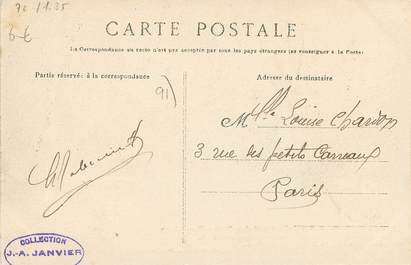 6€
CARTE POSTALE
La Correspondance au recto n'est pas acceptée par tous les pays étrangers (se renseigner à la Poste)
Partie réservée à la correspondance
Adresse du destinataire
91)
Mlle Louise Chardon
3 rue des petits Carreaux
Paris
COLLECTION
J.-A. JANVIER